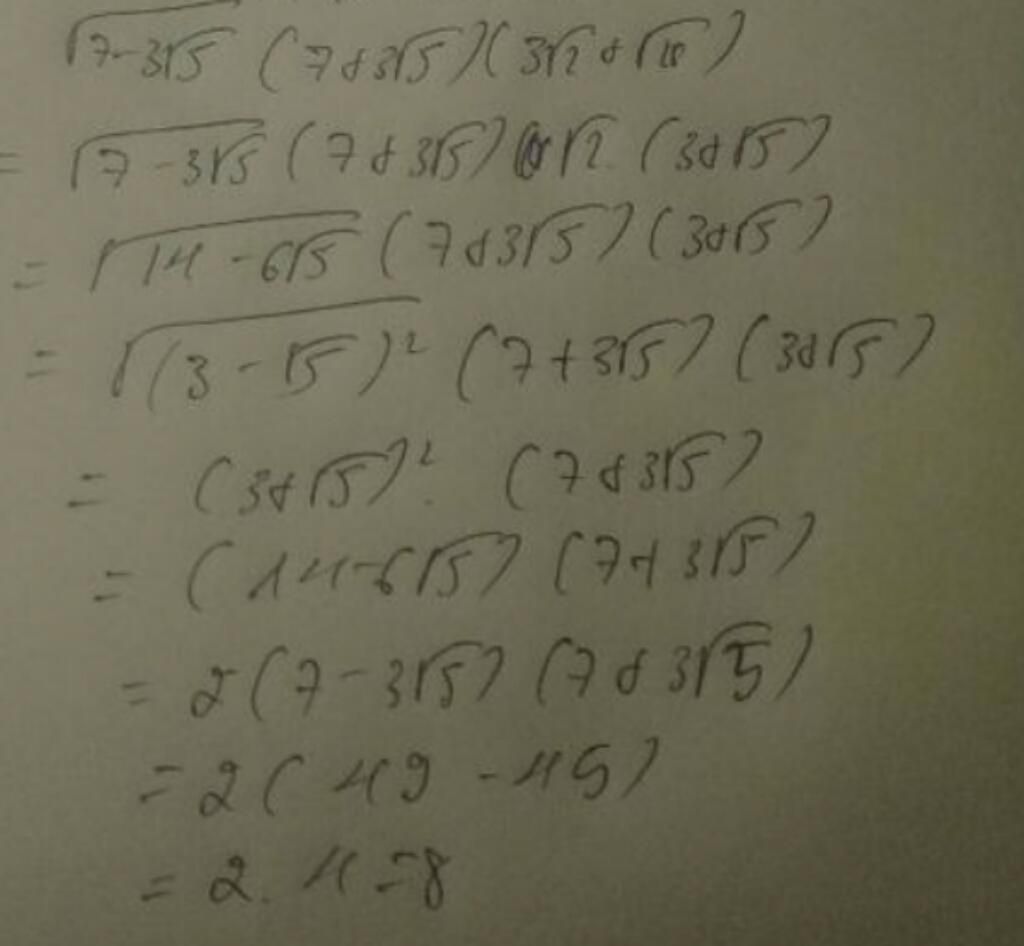 √(7-3√5) (7+3√5)(3√2+√10)
= √(7-3√5) (7+3√5) √2. (3+√5)
= √(14-6√5) (7+3√5)(3+√5)
= √((3-√5)²) (7+3√5) (3+√5)
= (3+√5)². (7+3√5)
= (14-6√5) (7+3√5)
= 2(7-3√5) (7+3√5)
= 2(49-45)
= 2.4=8